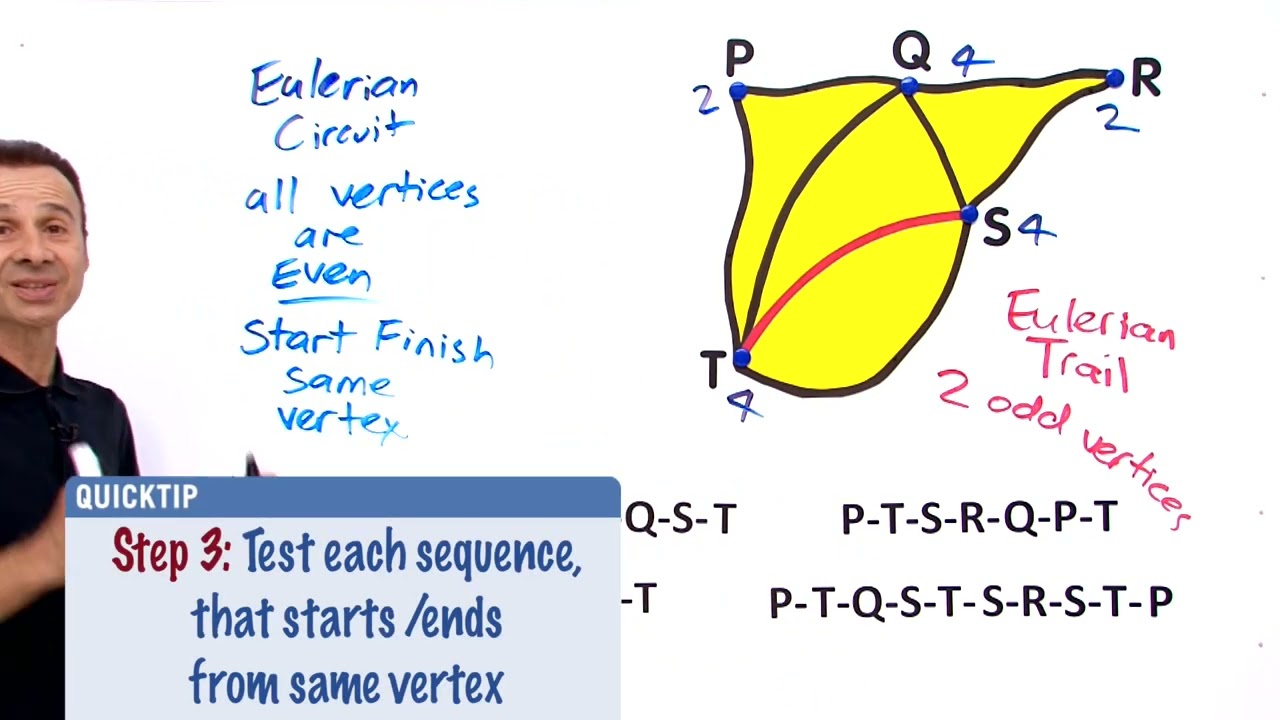 Eulerian
Circuit
all vertices
are
Even
Start Finish
same
vertex
P
2
Q
4
R
2
S
4
T
4
Eulerian
Trail
2 odd vertices
Q-S-T
P-T-S-R-Q-P-T
-T
P-T-Q-S-T-S-R-S-T-P
QUICKTIP
Step 3: Test each sequence,
that starts /ends
from same vertex